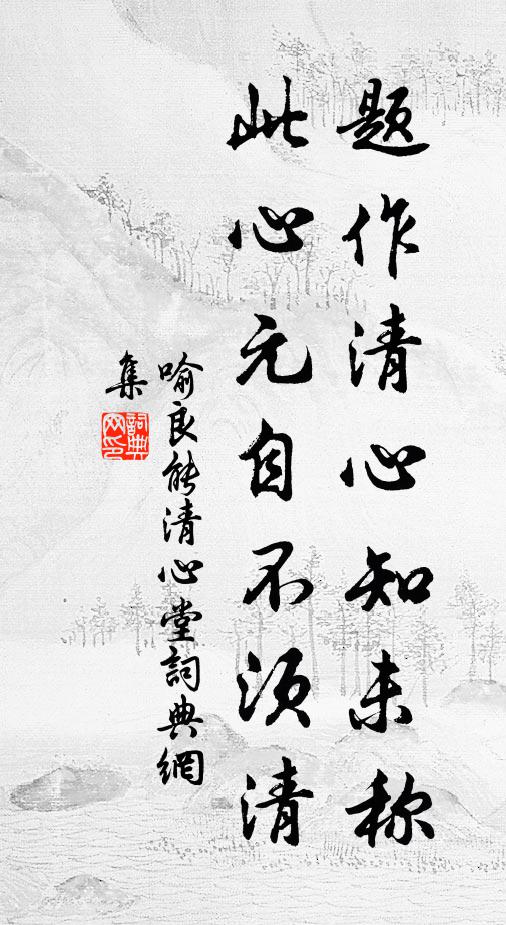 题作清心知未称
此心元自不须清
喻良能清心堂詞典網
集
詞典
网印